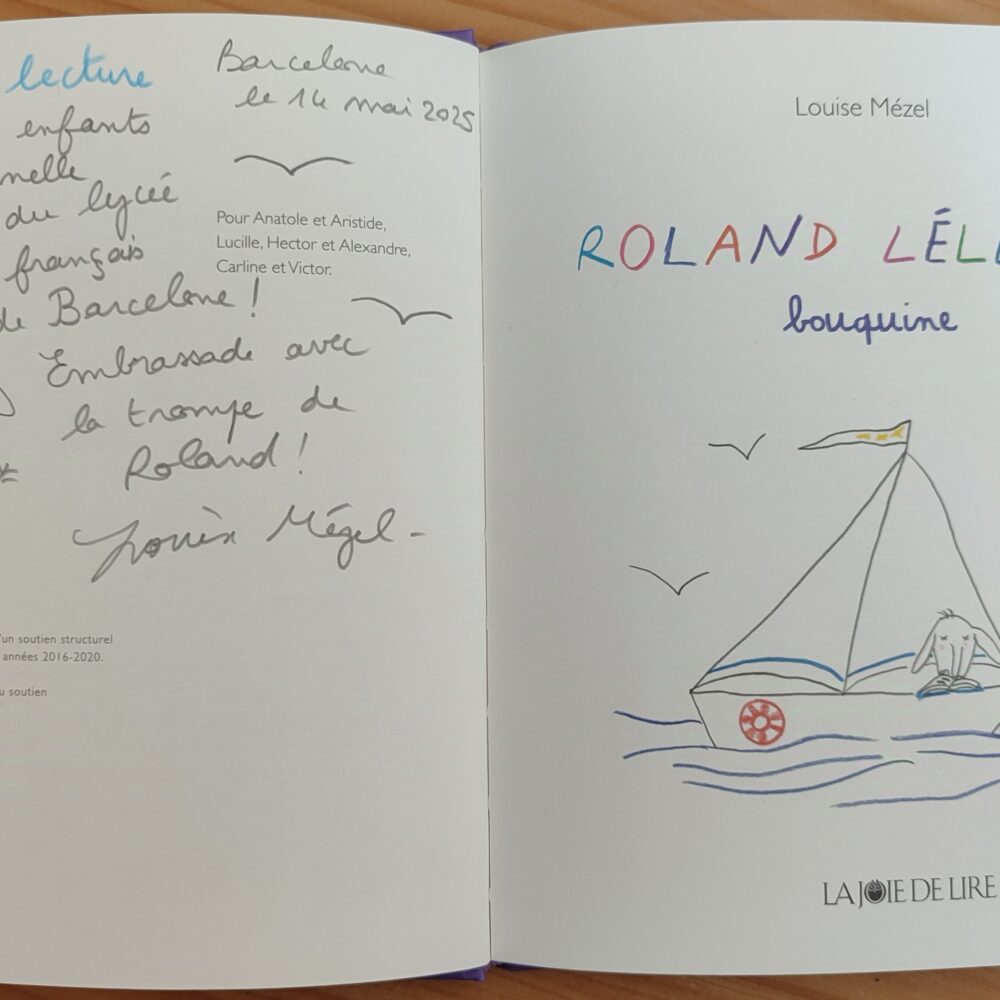 lecture
enfants
nelle
du lycée
français
de Barcelone !
Embrassade avec
la trompe de
Roland !
Louise Mézel -
Barcelone
le 14 mai 2025
Pour Anatole et Aristide,
Lucille, Hector et Alexandre,
Carline et Victor.
'un soutien structurel
années 2016-2020.
u soutien
Louise Mézel
ROLAND LÉL
bouquine
LA JOIE DE LIRE